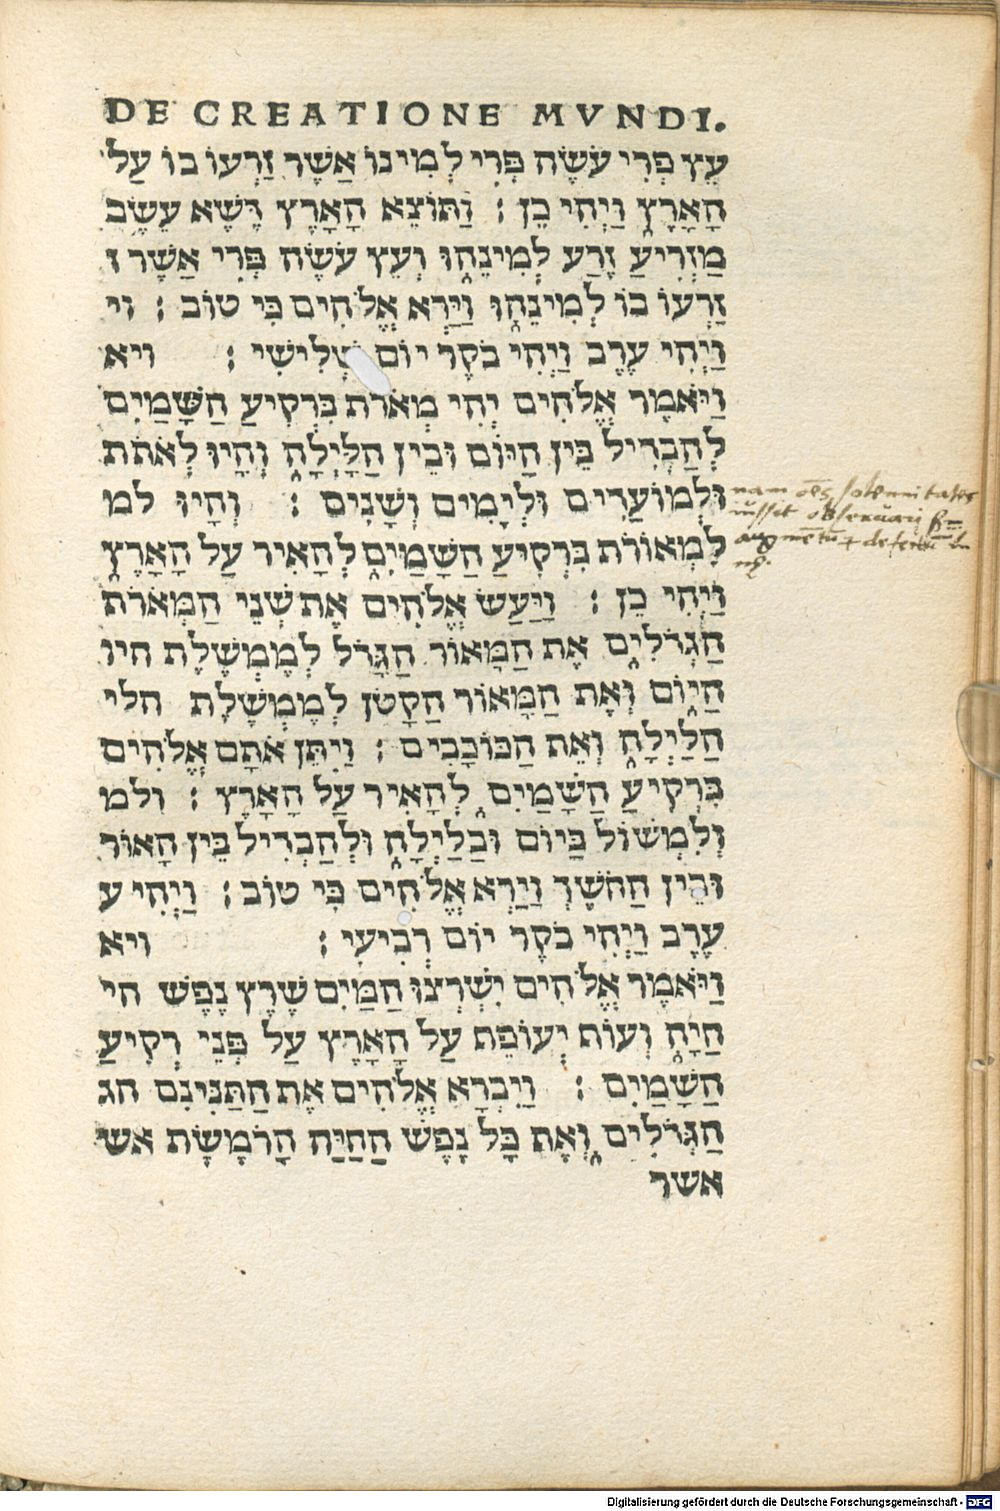 DE CREATIONE MVNDI.
עֵץ פְּרִי עֹשֶׂה פְּרִי לְמִינוֹ אֲשֶׁר זַרְעוֹ בוֹ עַל
הָאָרֶץ וַיְהִי כֵן : וַתּוֹצֵא הָאָרֶץ דֶּשֶׁא עֵשֶׂב
מַזְרִיעַ זֶרַע לְמִינֵהוּ וְעֵץ עֹשֶׂה פְּרִי אֲשֶׁר ז
זַרְעוֹ בוֹ לְמִינֵהוּ וַיַּרְא אֱלֹהִים כִּי טוֹב : וי
וַיְהִי עֶרֶב וַיְהִי בֹקֶר יוֹם שְׁלִישִׁי : ויא
וַיֹּאמֶר אֱלֹהִים יְהִי מְאֹרֹת בִּרְקִיעַ הַשָּׁמַיִם
לְהַבְדִיל בֵּין הַיּוֹם וּבֵין הַלָּיְלָה וְהָיוּ לְאֹתֹת
וּלְמוֹעֲדִים וּלְיָמִים וְשָׁנִים : וְהָיוּ למ
לִמְאוֹרֹת בִּרְקִיעַ הַשָּׁמַיִם לְהָאִיר עַל הָאָרֶץ
וַיְהִי כֵן : וַיַּעַשׂ אֱלֹהִים אֶת שְׁנֵי הַמְּאֹרֹת
הַגְּדֹלִים אֶת הַמָּאוֹר הַגָּדֹל לְמֶמְשֶׁלֶת היו
הַיּוֹם וְאֶת הַמָּאוֹר הַקָּטֹן לְמֶמְשֶׁלֶת הלי
הַלַּיְלָה וְאֵת הַכּוֹכָבִים : וַיִּתֵּן אֹתָם אֱלֹהִים
בִּרְקִיעַ הַשָּׁמַיִם לְהָאִיר עַל הָאָרֶץ : ולמ
וְלִמְשׁוֹל בַּיּוֹם וּבַלַּיְלָה וּלְהַבְדִיל בֵּין הָאוֹר
וּבֵין הַחֹשֶׁךְ וַיַּרְא אֱלֹהִים כִּי טוֹב : וַיְהִי ע
עֶרֶב וַיְהִי בֹקֶר יוֹם רְבִיעִי : ויא
וַיֹּאמֶר אֱלֹהִים יִשְׁרְצוּ הַמַּיִם שֶׁרֶץ נֶפֶשׁ חי
חַיָּה וְעוֹת יְעוֹפֵת עַל הָאָרֶץ עַל פְּנֵי רְקִיעַ
הַשָּׁמַיִם : וַיִבְרָא אֱלֹהִים אֶת הַתַּנִּינִם הג
הַגְּדֹלִים וְאֶת כָּל נֶפֶשׁ הַחַיַּה הָרֹמֶשֶׂת אש
אשר
nam oēs solennitates
iussit obseruari
augmētū defectū
Digitalisierung gefördert durch die Deutsche Forschungsgemeinschaft - DFG